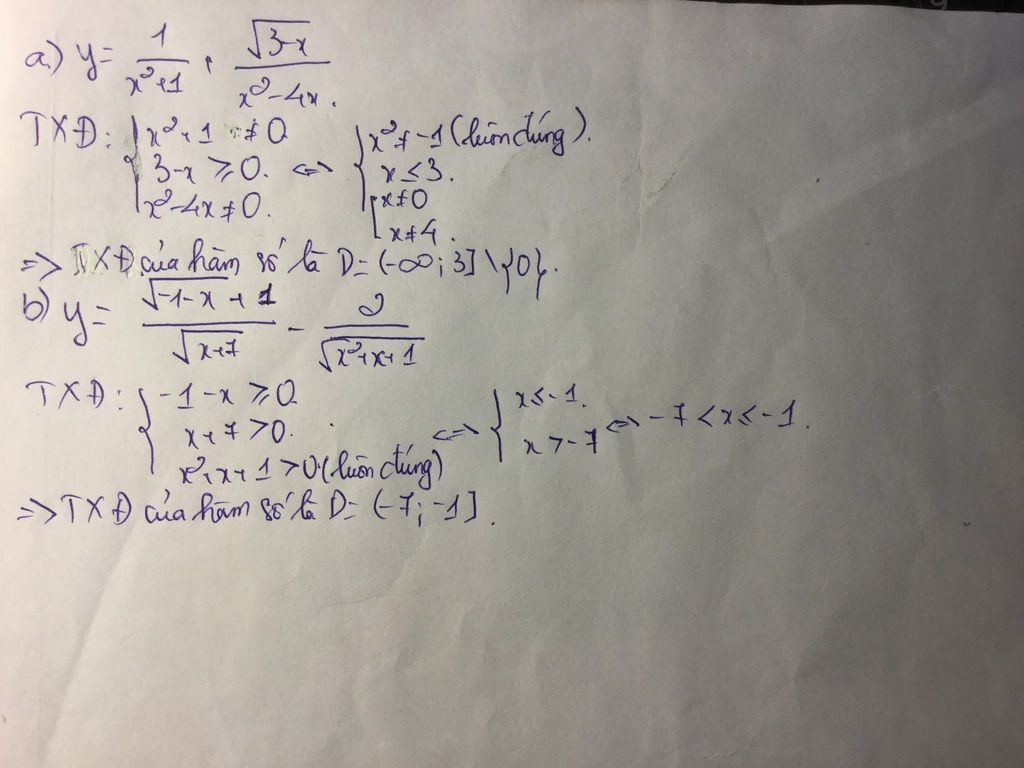 a) y = 1/(x²+1) . √(3-x)/(x²-4x).
TXĐ: { x²+1 ≠ 0
3-x ≥ 0. <=> { x² ≠ -1 (luôn đúng).
x ≤ 3.
x²-4x ≠ 0. [ x ≠ 0
x ≠ 4.
=> TXĐ của hàm số là D = (-∞; 3] \ {0}.
b) y = (√(-1-x) + 1)/√(x+7) - 2/√(x²+x+1)
TXĐ: { -1-x ≥ 0
x+7 > 0.
x²+x+1 > 0 (luôn đúng) <=> { x ≤ -1.
x > -7 <=> -7 < x ≤ -1.
=> TXĐ của hàm số là D = (-7; -1].